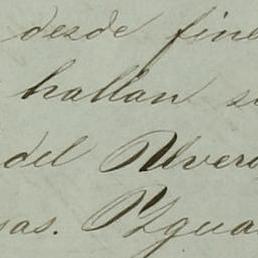 desde fine
hallan su
del Alvera
as. Igua